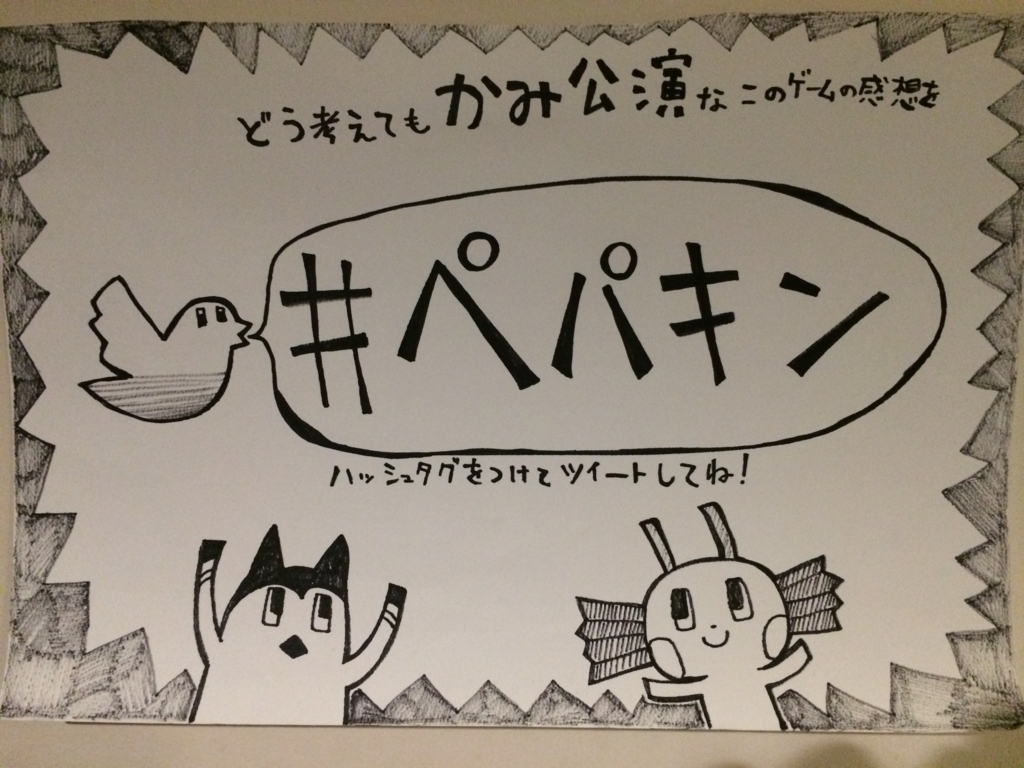 どう考えてもかみ公演なこのゲームの感想を
#ペパキン
ハッシュタグをつけてツイートしてね!